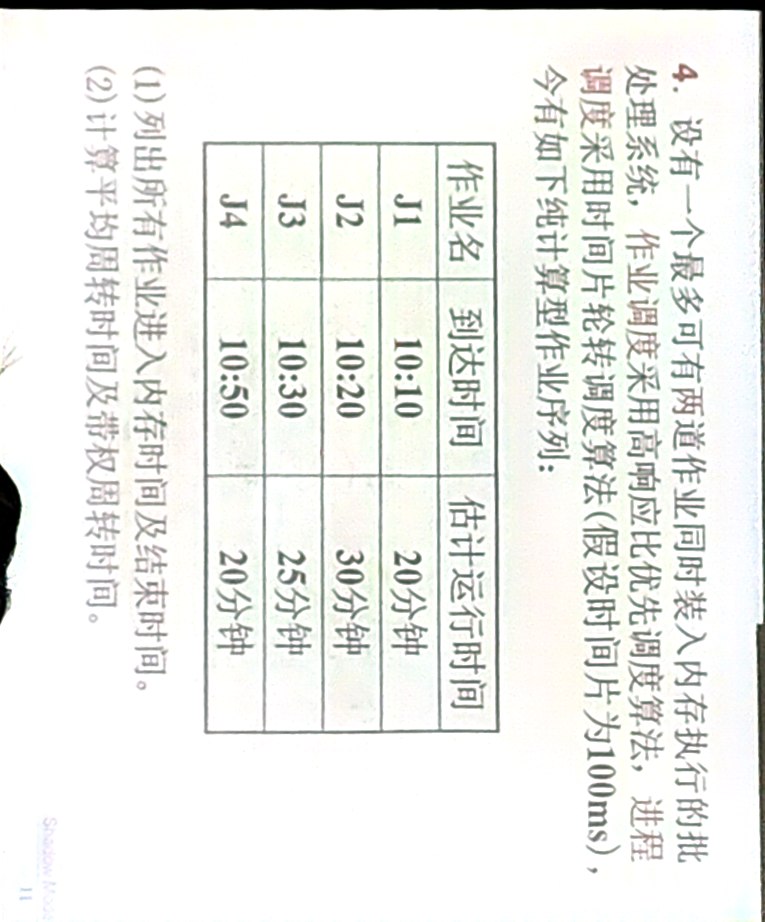 4. 设有一个最多可有两道作业同时装入内存执行的批
处理系统，作业调度采用高响应比优先调度算法，进程
调度采用时间片轮转调度算法(假设时间片为100ms)，
今有如下纯计算型作业序列：
作业名 到达时间 估计运行时间
J1 10:10 20分钟
J2 10:20 30分钟
J3 10:30 25分钟
J4 10:50 20分钟
(1)列出所有作业进入内存时间及结束时间。
(2)计算平均周转时间及带权周转时间。
11